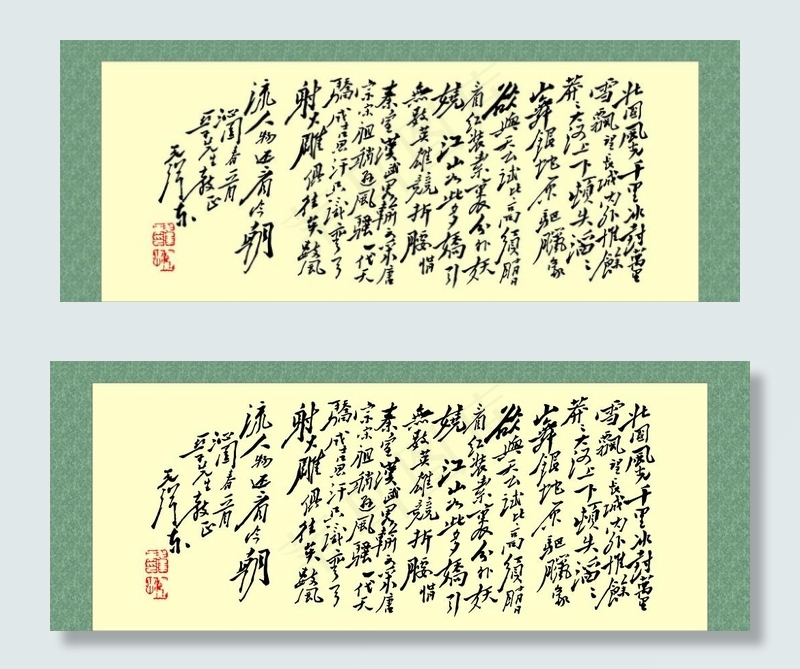 北国風光千里冰封萬里
雪飄望长城内外惟餘
莽々大河上下頓失滔々
山舞銀蛇原驱臘象
欲與天公試比高須晴日
看红装素裹分外妖
嬈江山如此多嬌引
無數英雄競折腰惜
秦皇漢武略輸文采唐
宗宋祖稍逊風騷一代天
驕成吉思汗只識弯弓
射大雕俱往矣数風
流人物还看今朝
沁園春雪
亚子先生教正
毛泽东
北国風光千里冰封萬里
雪飄望长城内外惟餘
莽々大河上下頓失滔々
山舞銀蛇原驱臘象
欲與天公試比高須晴日
看红装素裹分外妖
嬈江山如此多嬌引
無數英雄競折腰惜
秦皇漢武略輸文采唐
宗宋祖稍逊風騷一代天
驕成吉思汗只識弯弓
射大雕俱往矣数風
流人物还看今朝
沁園春雪
亚子先生教正
毛泽东